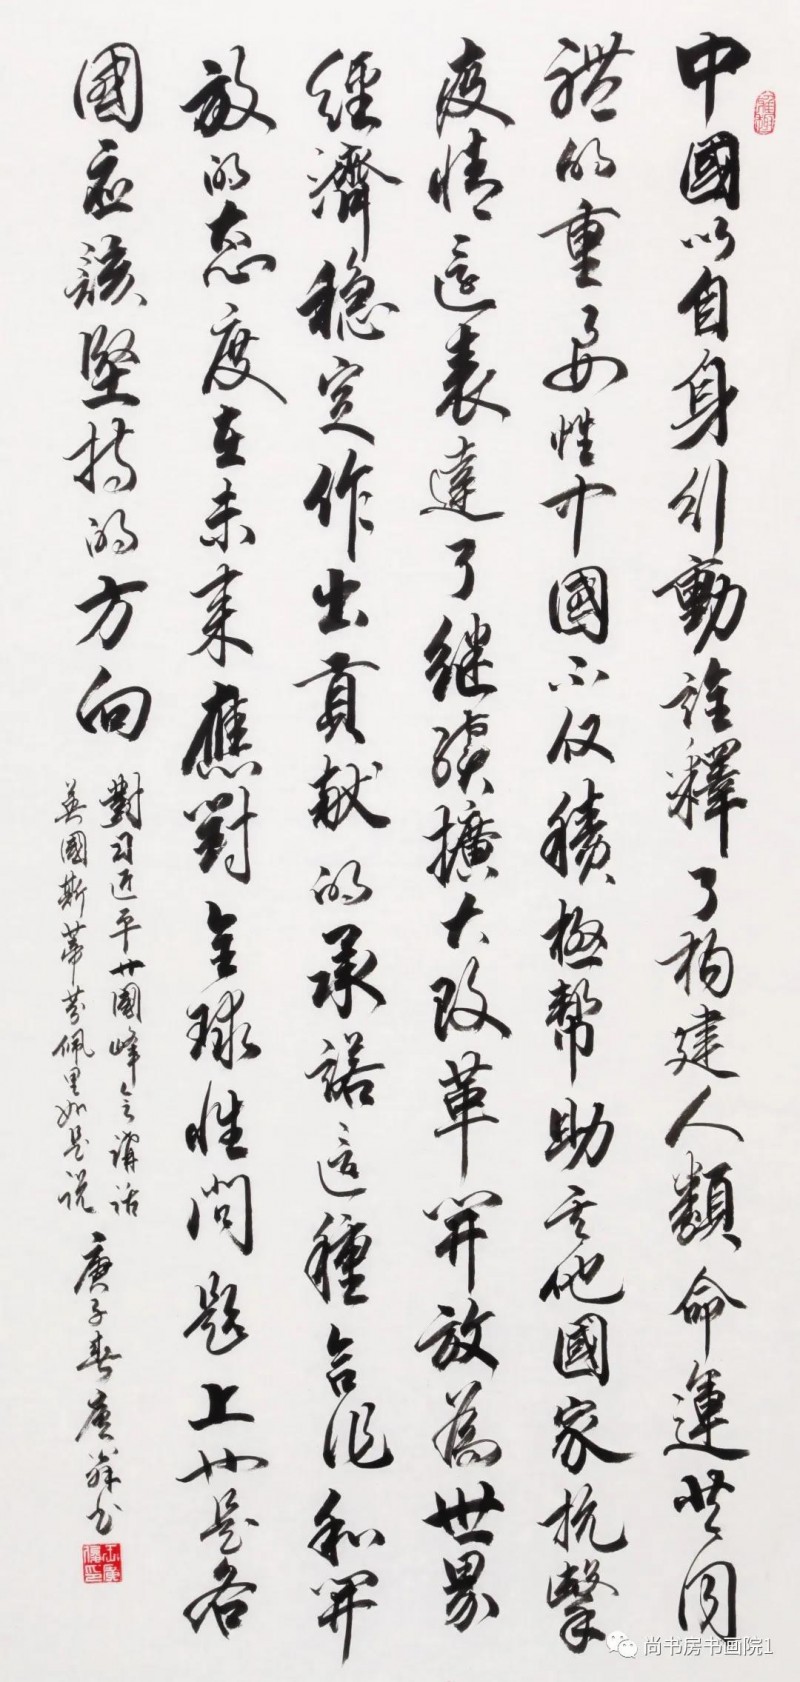 中國以自身行動詮釋了構建人類命運共同
體的重要性中國不仅積極幫助其他國家抗擊
疫情還表達了继續擴大改革開放為世界
經濟穩定作出貢献的承諾這種合作和開
放的态度在未来應對全球性問題上也是各
國应該堅持的方向
對习近平廿國峰会講话
英國斯蒂芬佩里如是说
庚子春 書
尚书房书画院1